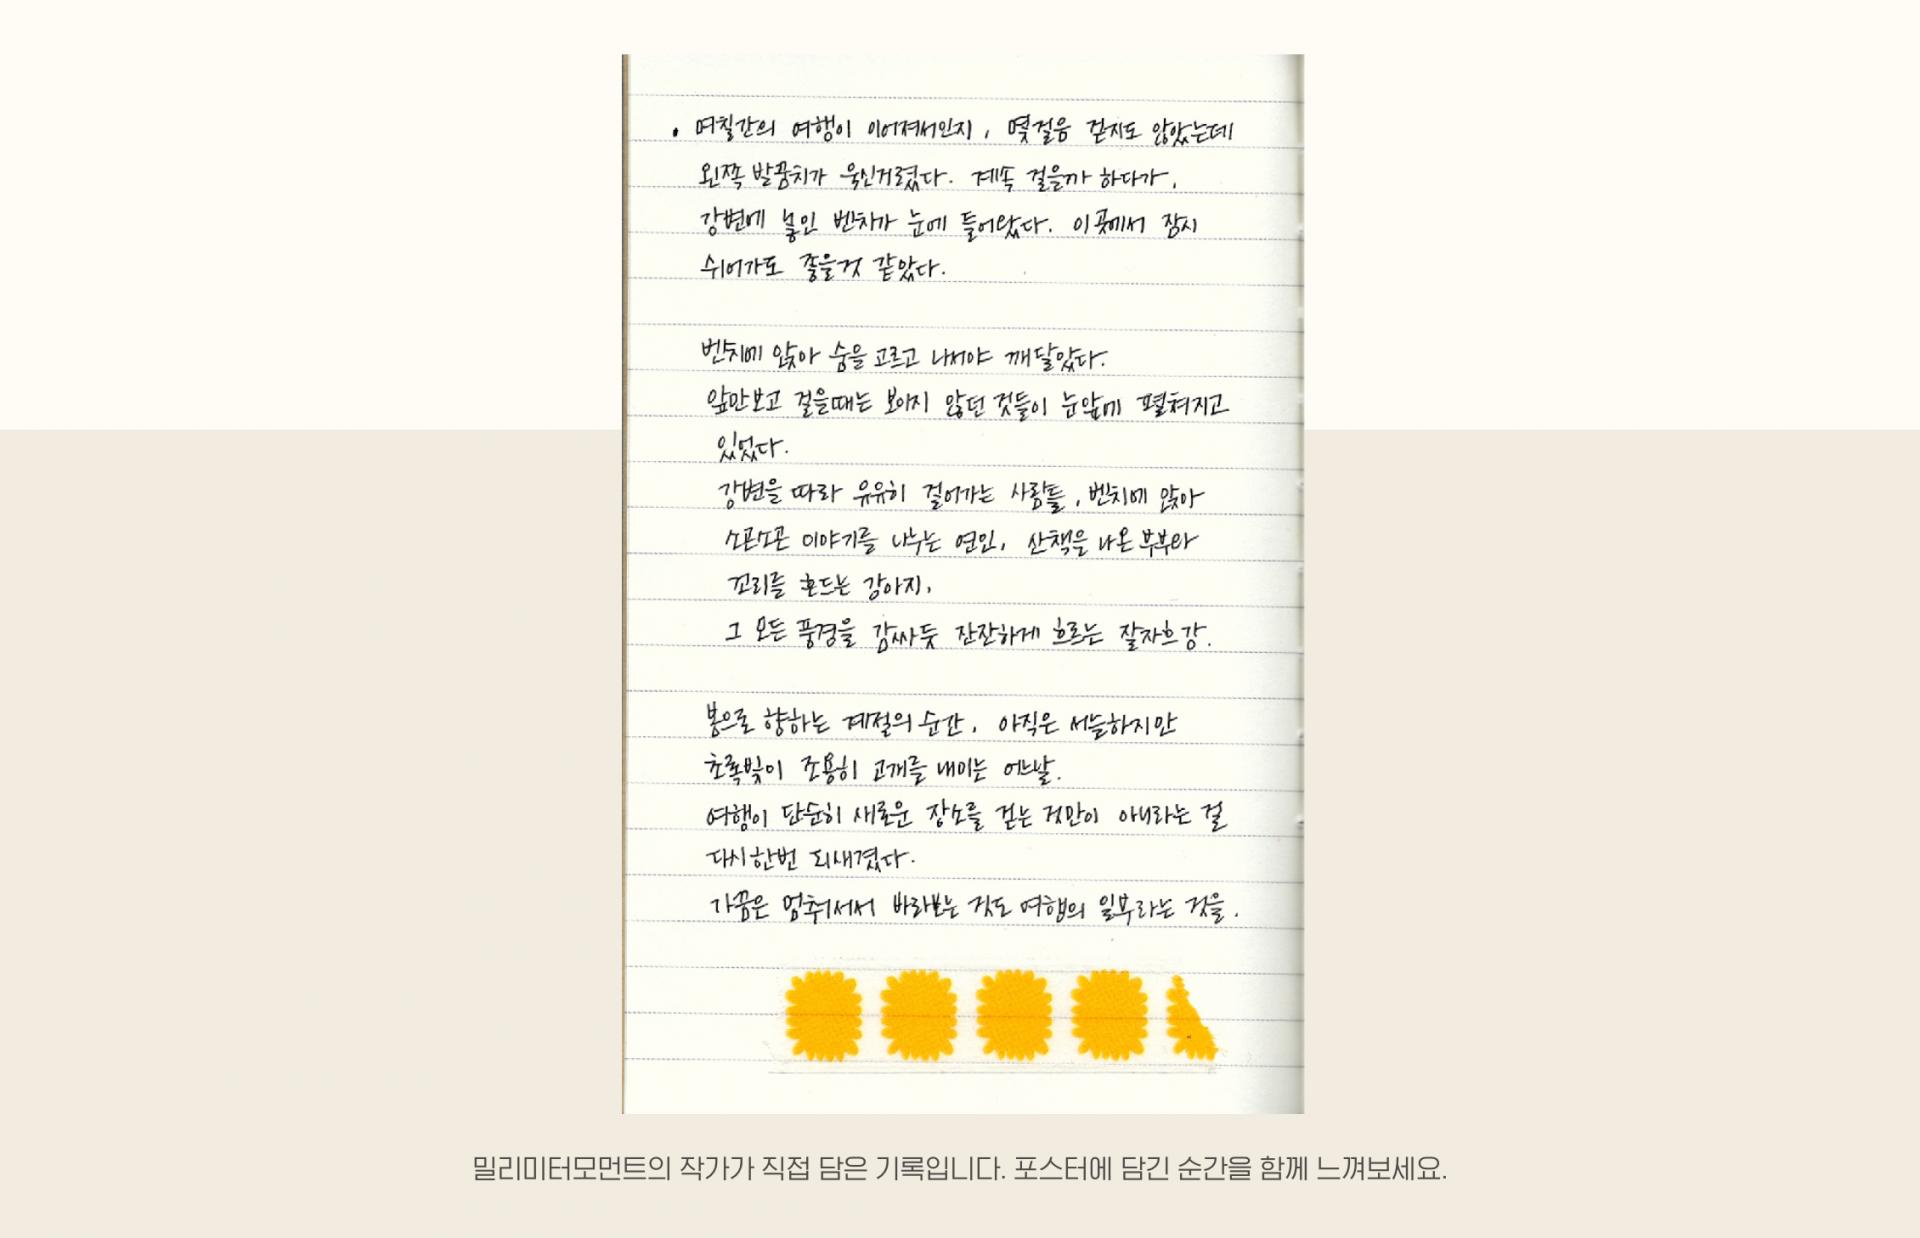 . 며칠간의 여행이 이어져서인지, 몇걸음 걷지도 않았는데
왼쪽 발꿈치가 욱신거렸다. 계속 걸을까 하다가,
강변에 놓인 벤치가 눈에 들어왔다. 이곳에서 잠시
쉬어가도 좋을것 같았다.
벤치에 앉아 숨을 고르고 나서야 깨달았다.
앞만보고 걸을때는 보이지 않던 것들이 눈앞에 펼쳐지고
있었다.
강변을 따라 유유히 걸어가는 사람들, 벤치에 앉아
소곤소곤 이야기를 나누는 연인, 산책을 나온 부부와
꼬리를 흔드는 강아지,
그 모든 풍경을 감싸듯 잔잔하게 흐르는 잘자흐강.
봄으로 향하는 계절의 순간, 아직은 서늘하지만
초록빛이 조용히 고개를 내미는 어느날.
여행이 단순히 새로운 장소를 걷는 것만이 아니라는 걸
다시한번 되새겼다.
가끔은 멈춰서서 바라보는 것도 여행의 일부라는 것을.
밀리미터모먼트의 작가가 직접 담은 기록입니다. 포스터에 담긴 순간을 함께 느껴보세요.